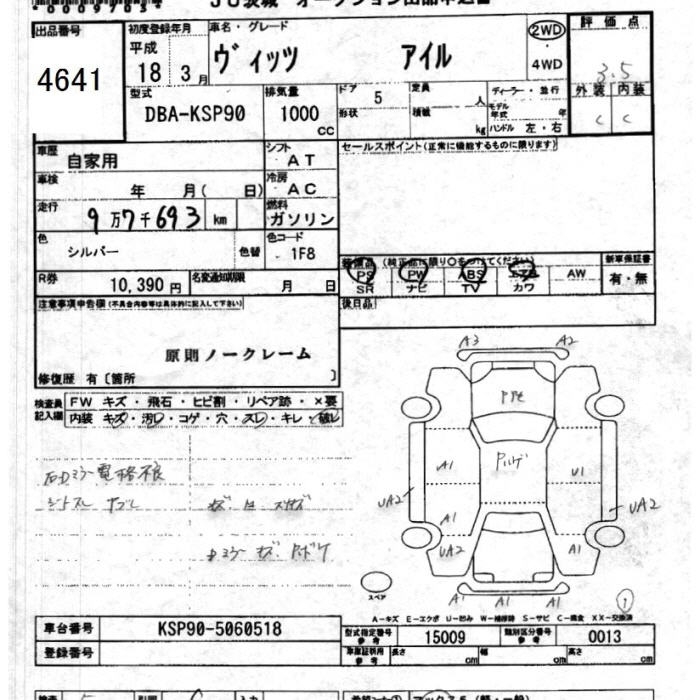 出品番号
4641
初度登録年月
平成
18 3月
車名・グレード
ヴィッツ アイル
2WD
・
4WD
評価点
3.5
外装 内装
C C
型式
DBA-KSP90
排気量
1000
cc
ドア 5
形状
定員 人
積載 kg
ディーラー・並行
モデル年式 年
ハンドル 左・右
車歴
自家用
シフト
AT
セールスポイント(正常に機能するものに限ります)
車検
年 月( 日)
冷房
AC
走行
9万7千693 km
燃料
ガソリン
色
シルバー
色替
色コード
1F8
装備品 (純正品に限り○をつけてください)
PS PW ABS エアB AW
SR ナビ TV カワ
新車保証書
有・無
R券
10,390 円
名変通知期限
月 日
後日品
注意事項申告欄(不具合内容等は具体的に記入して下さい)
原則ノークレーム
修復歴 有〔箇所 〕
検査員
記入欄
FW キズ・飛石・ヒビ割・リペア跡・×要
内装 キズ・汚レ・コゲ・穴・スレ・キレ・破レ
A3 A2
A1 U1
UA2 UA2
A1
UA2 A1
A1 A1 A1
1
スペア
A-キズ E-エクボ U-凹み W-補修跡 S-サビ C-腐食 XX-交換済
車台番号
KSP90-5060518
型式指定番号
参考
15009
類別区分番号
参考
0013
登録番号
車庫証明用
参考
長さ cm
幅 cm
高さ cm